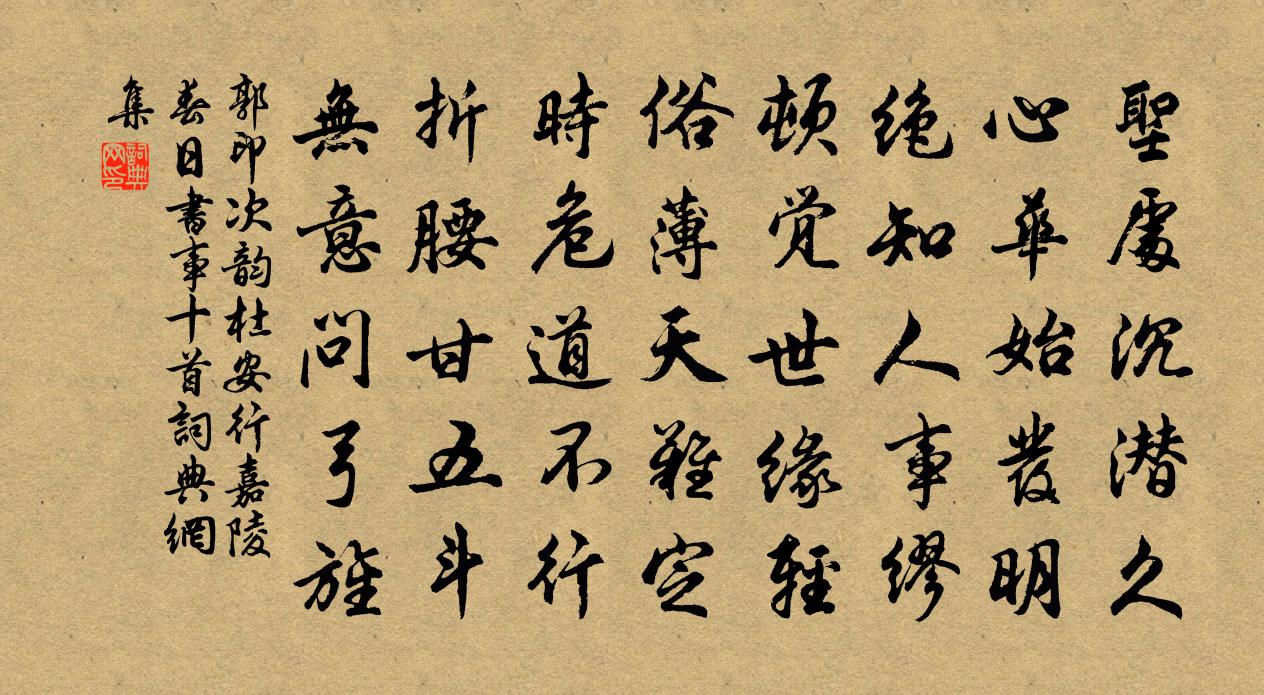 聖處沉潛久
心華始發明
絶知人事繆
頓覺世緣輕
俗薄天難定
時危道不行
折腰甘五斗
無意問弓旌
郭印次韵杜安行嘉陵
春日書事十首詞典網
集
詞典網印